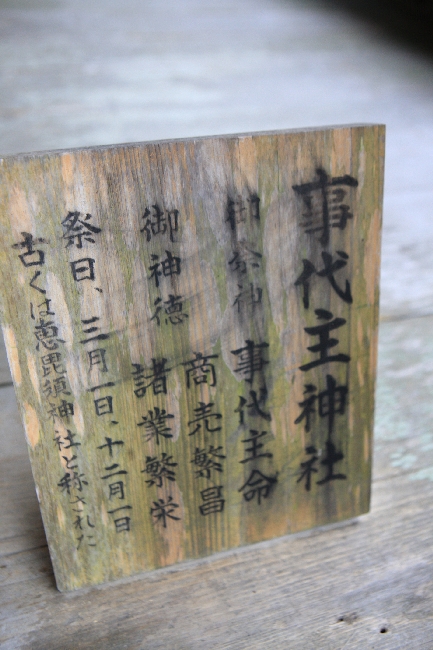 事代主神社
御祭神 事代主命
商売繁昌
御神徳 諸業繁栄
祭日、三月一日、十二月一日
古くは恵毘須神社と称された